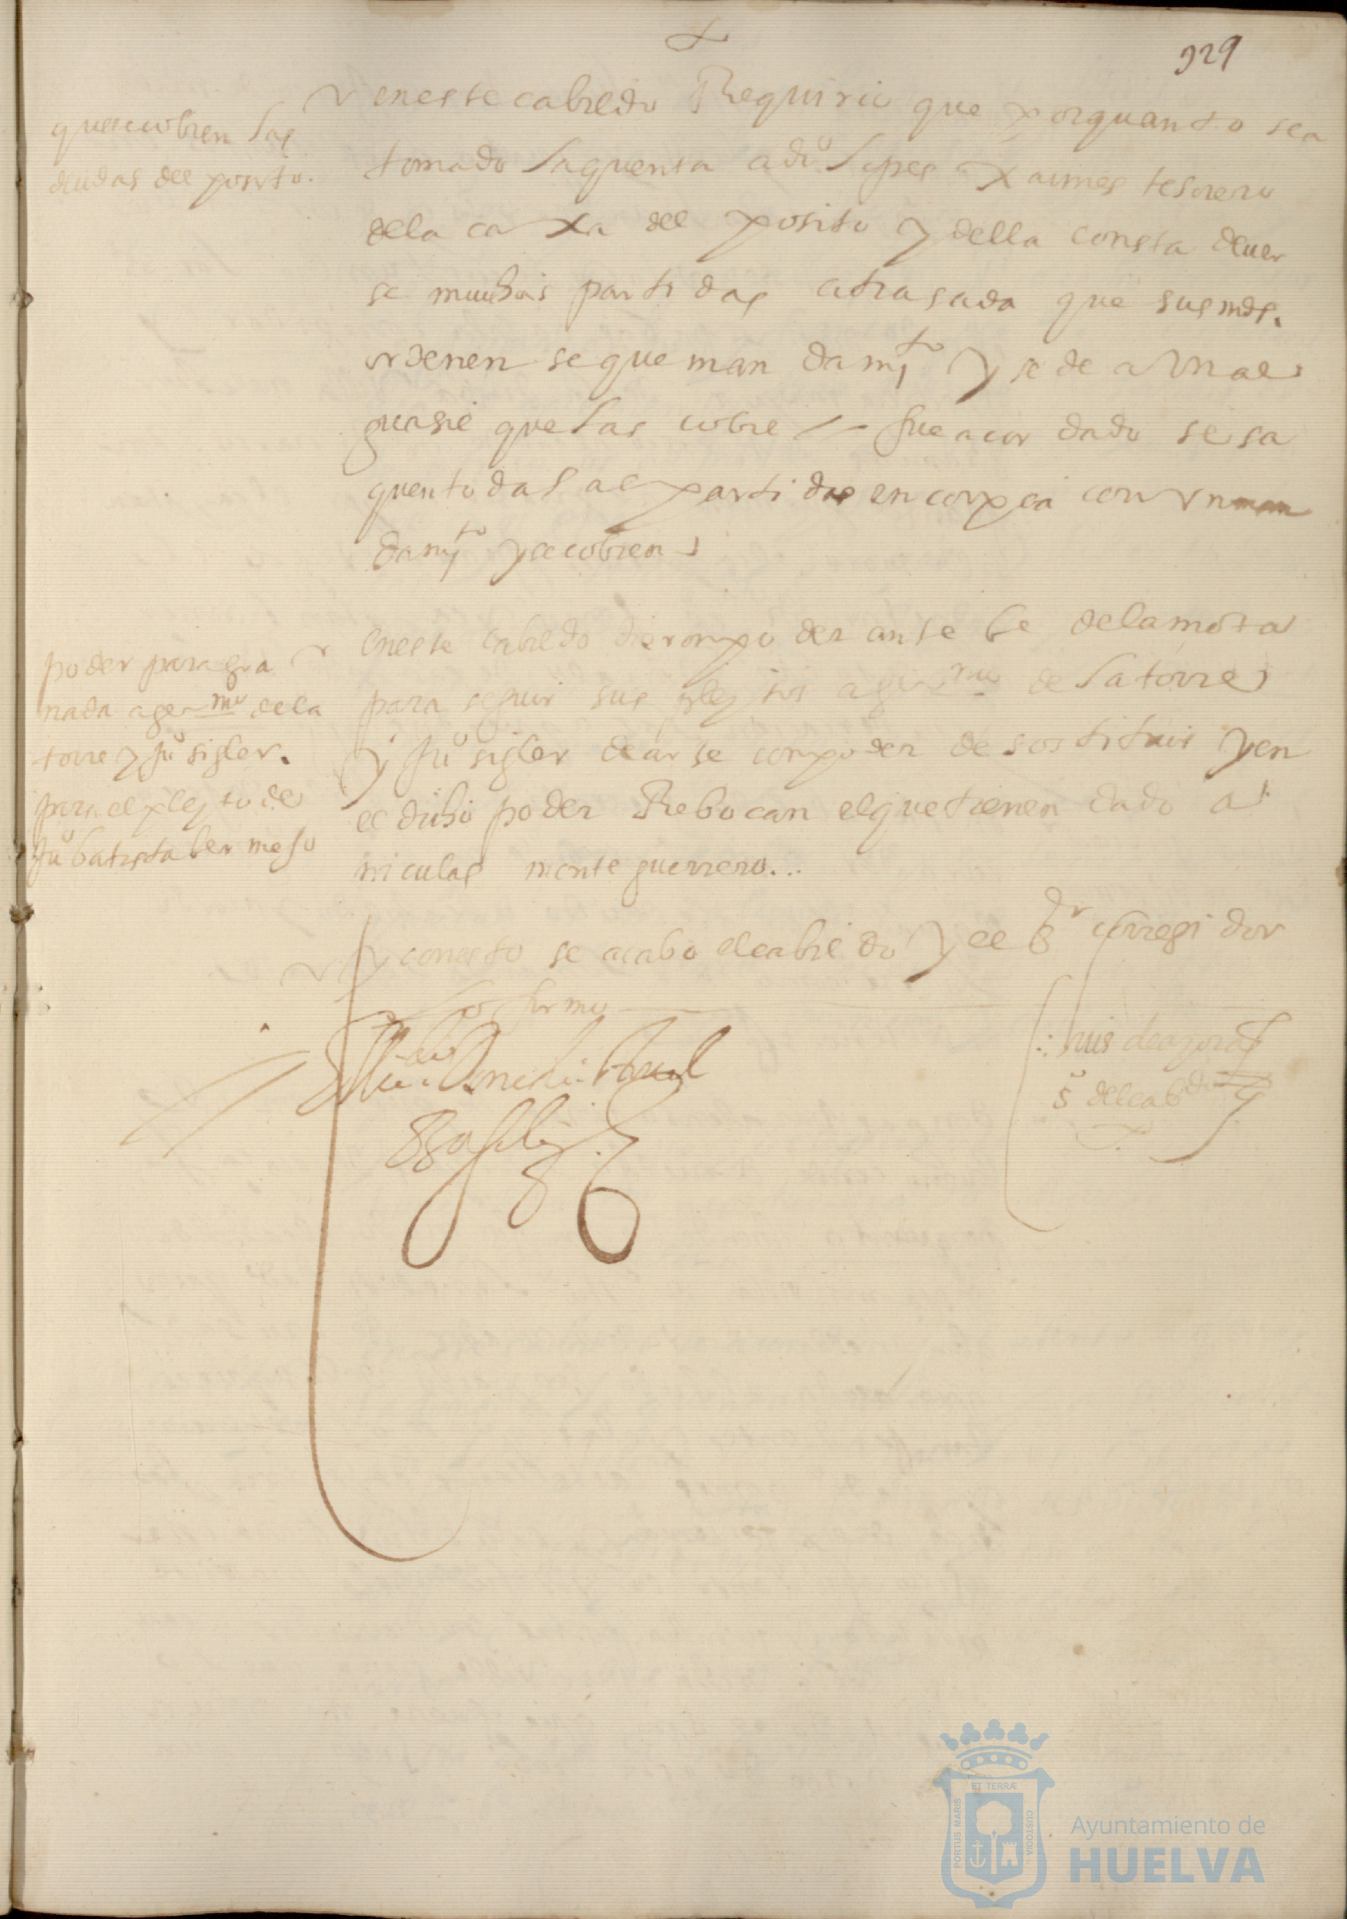 929
que se cobren las
deudas del posito.
en este cabildo Requirio que porquanto sea
tomado la quenta a diº lopes Xaimes tesorero
dela caxa del posito y della consta dever
se muchas partidas atrasada que sus mds.
ordenen se que mandamyto y se de a Un al
guasil que las cobre // fue acordado se sa
quen todas las partidas en copia con un man
damyto y se cobren
poder para gra
nada a germº dela
torre y juº sigler.
para el pleyto de
juº batista bermejo
en este cabildo dieron poder ante be de la mota
para seguir sus pleytos a germº de la torre
y juº sigler de arse con poder de sostituir y en
el dicho poder Rebocan el que tienen dado a
niculas monte guerrero...
y con esto se acabo el cabildo y el sr corregidor
lo firmo
luis de
sº del cabdo
ET TERRÆ
PORTUS MARIS
CUSTODIA
Ayuntamiento de
HUELVA